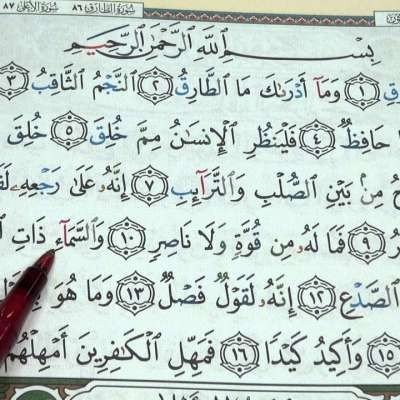 سورة الطارق ٨٦ سورة الأعلى ٨٧
بِسْمِ ٱللَّهِ ٱلرَّحْمَٰنِ ٱلرَّحِيمِ
١ وَمَآ أَدْرَىٰكَ مَا ٱلطَّارِقُ ٢ ٱلنَّجْمُ ٱلثَّاقِبُ ٣
حَافِظٌ ٤ فَلْيَنظُرِ ٱلْإِنسَٰنُ مِمَّ خُلِقَ ٥ خُلِقَ
مِنۢ بَيْنِ ٱلصُّلْبِ وَٱلتَّرَآئِبِ ٧ إِنَّهُۥ عَلَىٰ رَجْعِهِۦ
٩ فَمَا لَهُۥ مِن قُوَّةٍ وَلَا نَاصِرٍ ١٠ وَٱلسَّمَآءِ ذَاتِ
ٱلصَّدْعِ ١٢ إِنَّهُۥ لَقَوْلٌ فَصْلٌ ١٣ وَمَا هُوَ
١٥ وَأَكِيدُ كَيْدًا ١٦ فَمَهِّلِ ٱلْكَٰفِرِينَ أَمْهِلْهُمْ